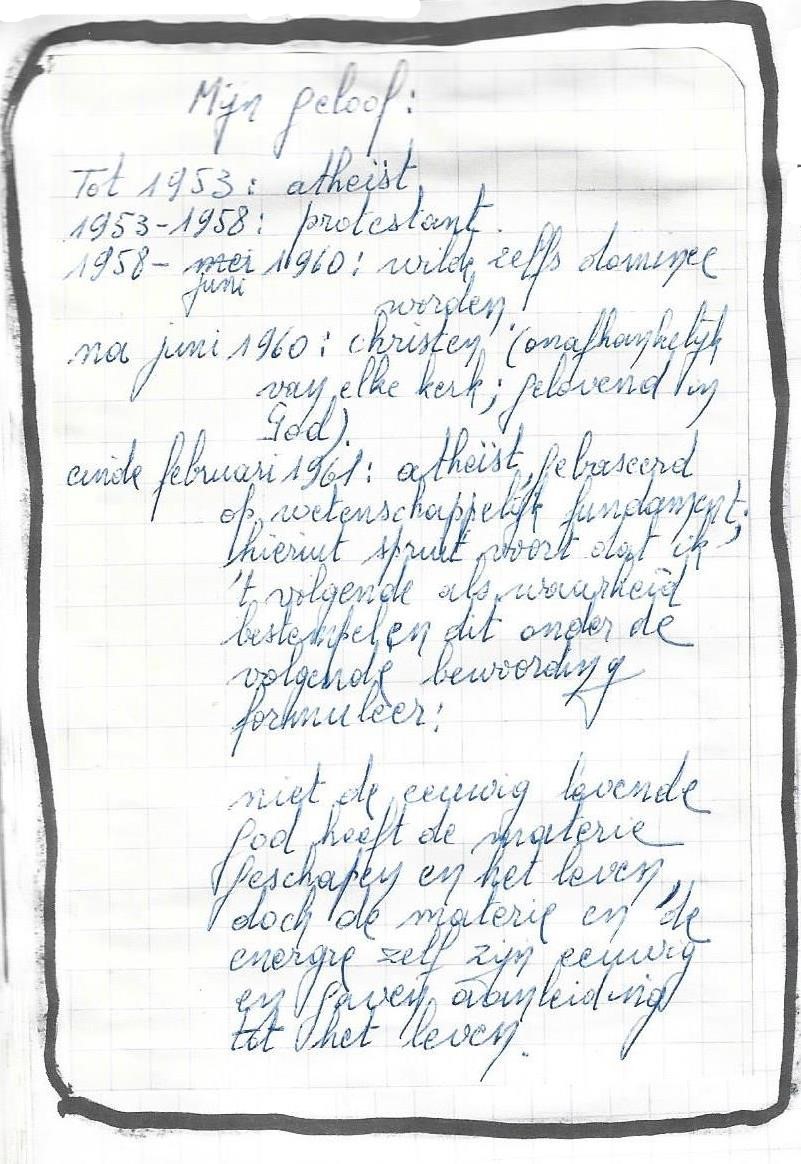 Mijn geloof:
Tot 1953: atheïst
1953-1958: protestant.
1958- mei 1960: wilde zelfs dominee
juni
worden
na juni 1960: christen (onafhankelijk
van elke kerk; gelovend in
God).
einde februari 1961: atheïst, gebaseerd
op wetenschappelijk fundament;
hieruit spruit voort dat ik
't volgende als waarheid
bestempel en dit onder de
volgende bewoording
formuleer:
niet de eeuwig levende
god heeft de materie
geschapen en het leven,
doch de materie en de
energie zelf zijn eeuwig
en gaven aanleiding
tot het leven.